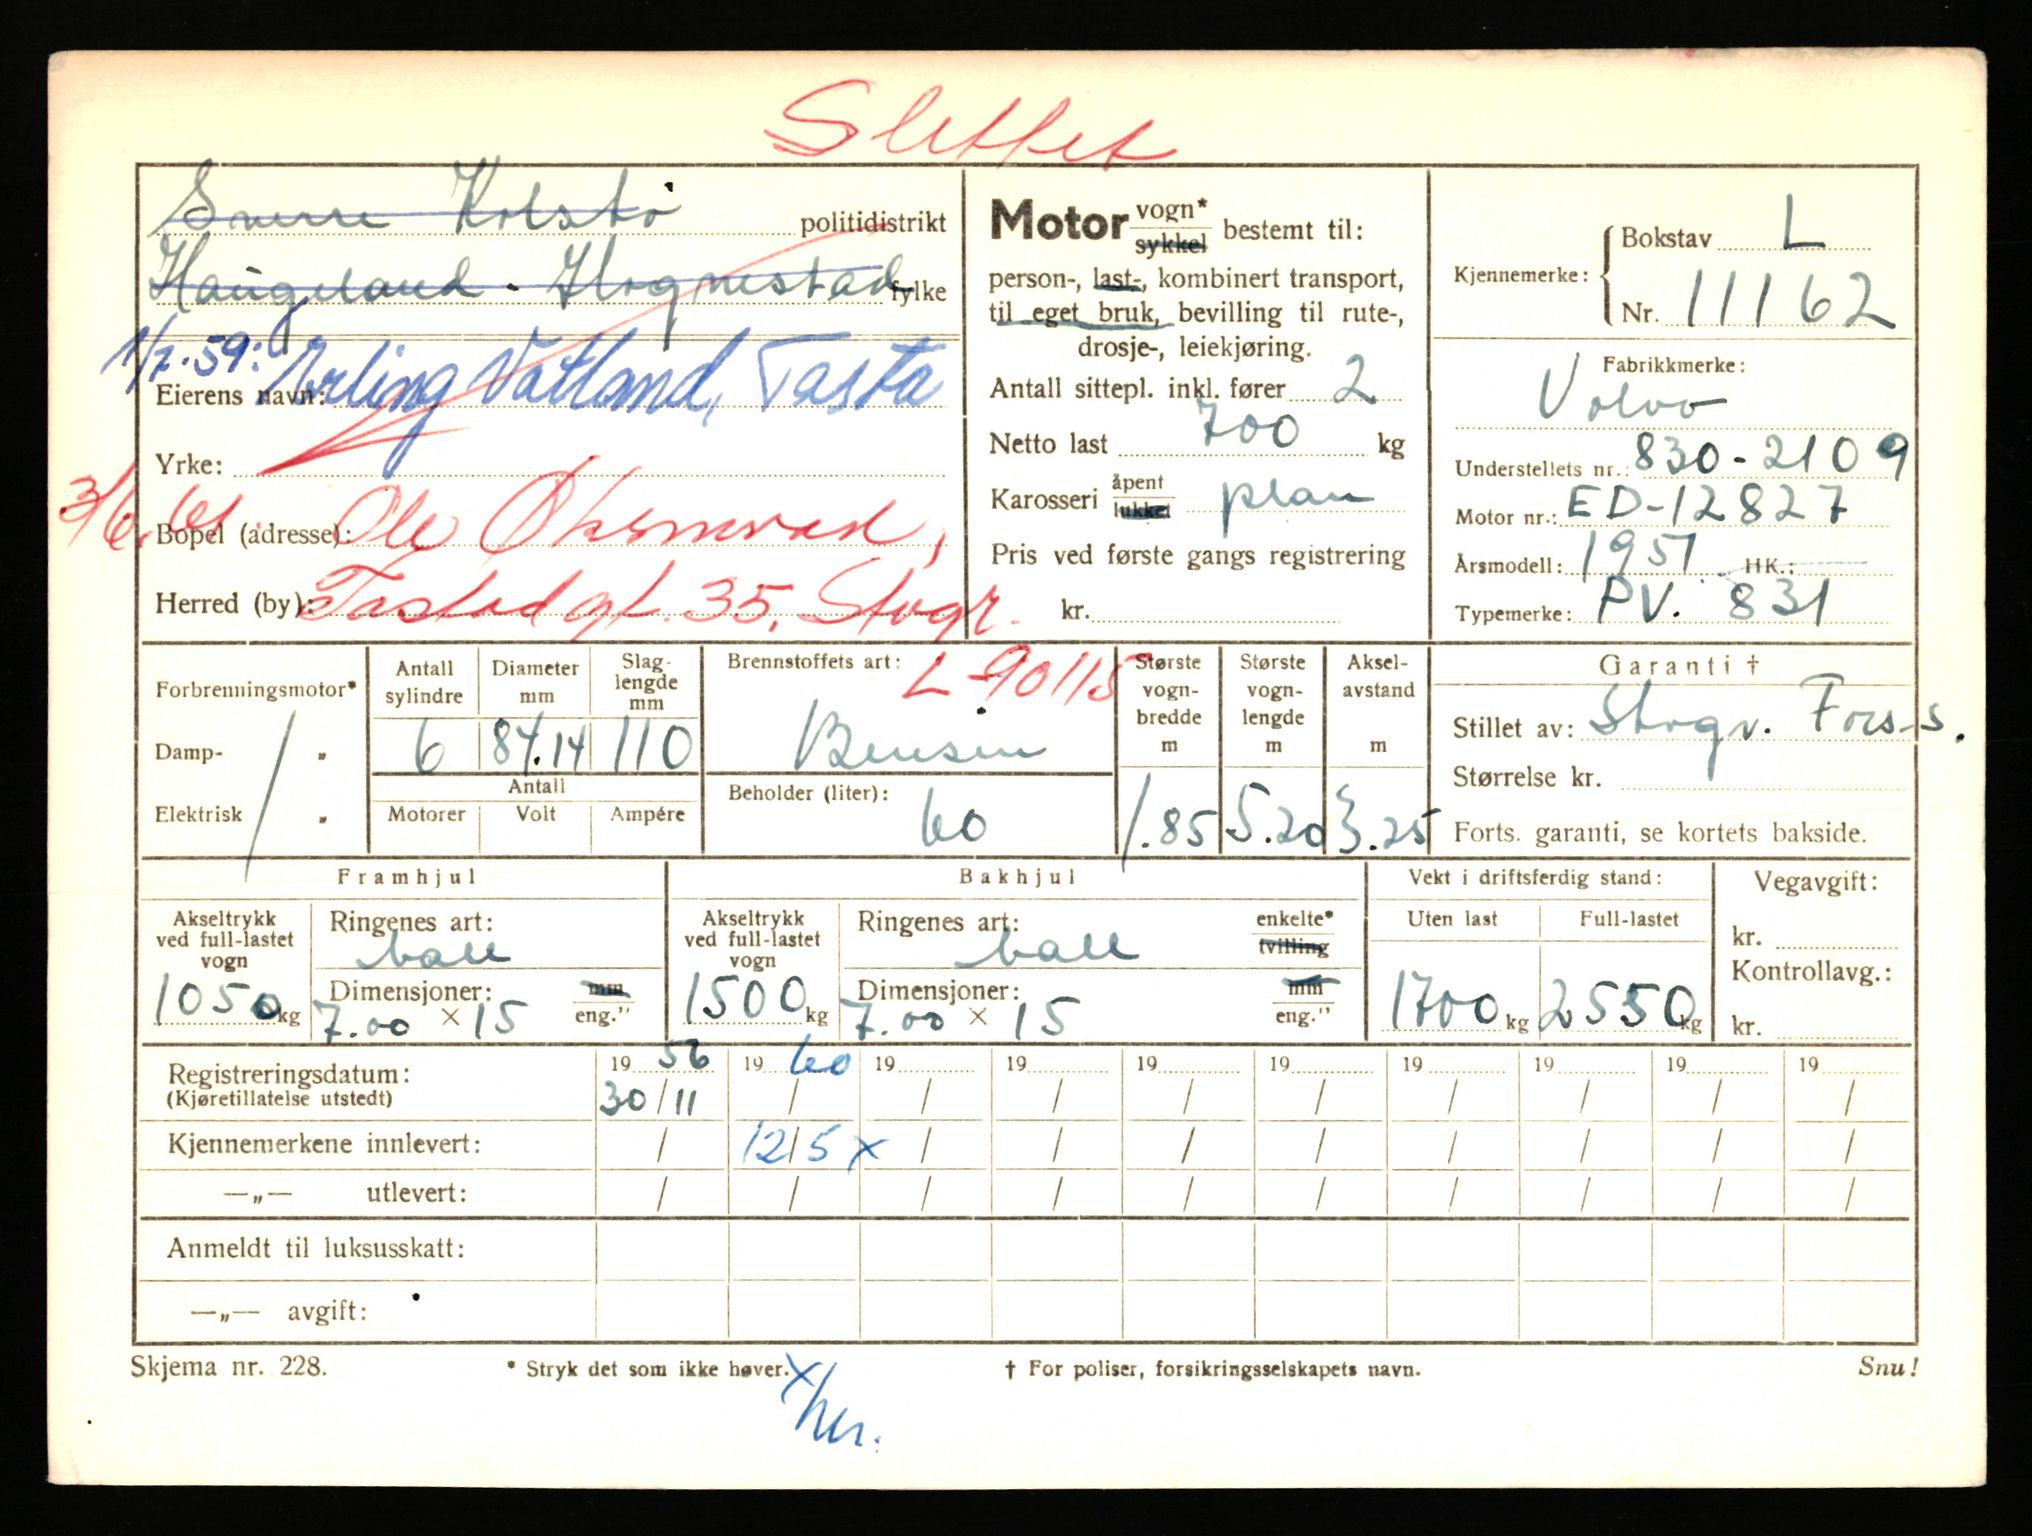 Slettet
Sverre Kolstø politidistrikt
Haugeland - Hognestad fylke
1/7.59: Erling Vatland, Tasta
Eierens navn:
Yrke:
3/6.61. Ole
Bopel (adresse):
Herred (by): Tastadgt. 35, Stvgr.
Motor vogn* sykkel bestemt til:
person-, last-, kombinert transport,
til eget bruk, bevilling til rute-,
drosje-, leiekjøring.
Antall sittepl. inkl. fører 2
Netto last 700 kg
Karosseri åpent lukket plan
Pris ved første gangs registrering
kr.
Kjennemerke: Bokstav L
Nr. 11162
Fabrikkmerke:
Volvo
Understellets nr.: 830-2109
Motor nr.: ED-12827
Årsmodell: 1951 HK.:
Typemerke: PV. 831
Forbrenningsmotor*
Damp- "
Elektrisk "
Antall sylindre 6
Diameter mm 84.14
Slaglengde mm 110
Antall
Motorer Volt Ampére
Brennstoffets art: L-90115
Bensin
Beholder (liter): 60
Største vogn-bredde m 1.85
Største vogn-lengde m 5.20
Aksel-avstand m 3.25
Garanti †
Stillet av: Stvgr. Fors-s.
Størrelse kr.
Forts. garanti, se kortets bakside.
Framhjul
Akseltrykk ved full-lastet vogn 1050 kg
Ringenes art: ball
Dimensjoner: mm eng." 7.00 × 15
Bakhjul
Akseltrykk ved full-lastet vogn 1500 kg
Ringenes art: ball enkelte* tvilling
Dimensjoner: mm eng." 7.00 × 15
Vekt i driftsferdig stand:
Uten last Full-lastet
1700 kg 2550 kg
Vegavgift:
kr.
Kontrollavg.:
kr.
Registreringsdatum: 19 56 19 60 19 19 19 19 19 19 19 19
(Kjøretillatelse utstedt) 30/11 / / / / / / / / /
Kjennemerkene innlevert: / 12/5 x / / / / / / / /
—„— utlevert: / / / / / / / / / /
Anmeldt til luksusskatt:
—„— avgift:
Skjema nr. 228. * Stryk det som ikke høver. † For poliser, forsikringsselskapets navn. Snu!
x